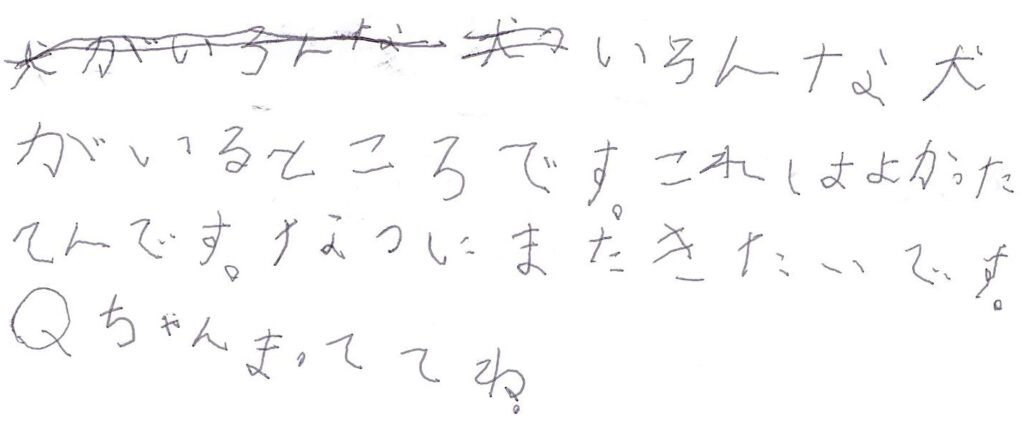 犬がいろんな 犬つ いろんな犬
がいるところです。これはよかった
てんです。なつにまたきたいです。
Qちゃんまっててね。